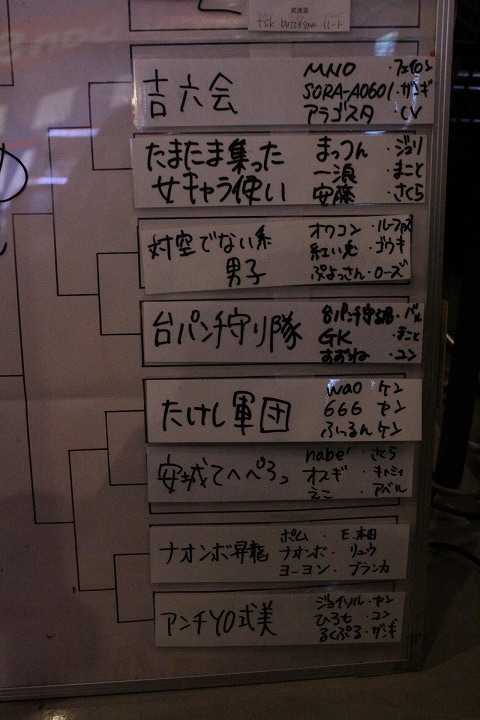 tsk buzzsaw ルート
吉六会
MNO ・フェイロン
SORA-A0601・ザンギ
アラゴスタ ・CV
たまたま集った
女キャラ使い
まっつん ・ジュリ
一浪 ・まこと
安藤 ・さくら
対空でない系
男子
オワコン ・ルーファス
紅い兎 ・ゴウキ
ぷよっさん・ローズ
台パン守り隊
台パンチ守る君・バル
GK ・まこと
すずね ・ユン
たけし軍団
wao ケン
666 ケン
ふっるん ケン
安城てへぺろっ
nabe! ・さくら
オスギ ・キャミィ
えこ ・アベル
ナオンボ昇龍
ポム ・ E.本田
ナオンボ ・ リュウ
ヨーヨン ・ ブランカ
アンチYO式美
ジョイソル・ヤン
ひろも ・ユン
るくぷる・ザンギ